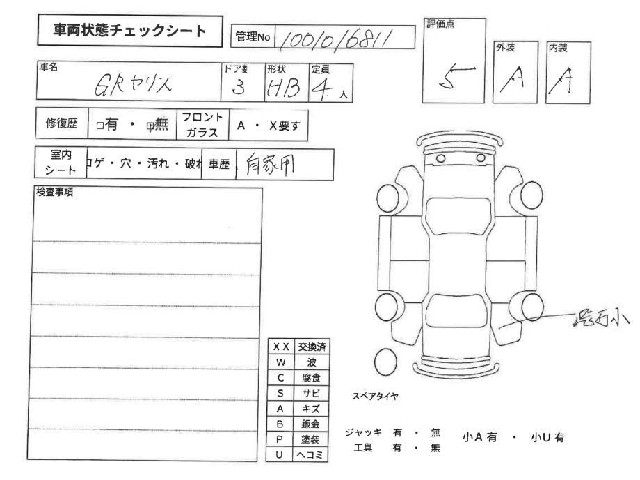 車両状態チェックシート
管理No 1001016811
評価点 5
外装 A
内装 A
車名 GRヤリス
ドア数 3
形状 HB
定員 4人
修復歴 □有・□無
フロントガラス A・X要す
室内シート コゲ・穴・汚れ・破れ
車歴 自家用
検査事項
XX 交換済
W 波
C 腐食
S サビ
A キズ
B 鈑金
P 塗装
U ヘコミ
スペアタイヤ
ジャッキ 有・無
工具 有・無
小A有・小U有